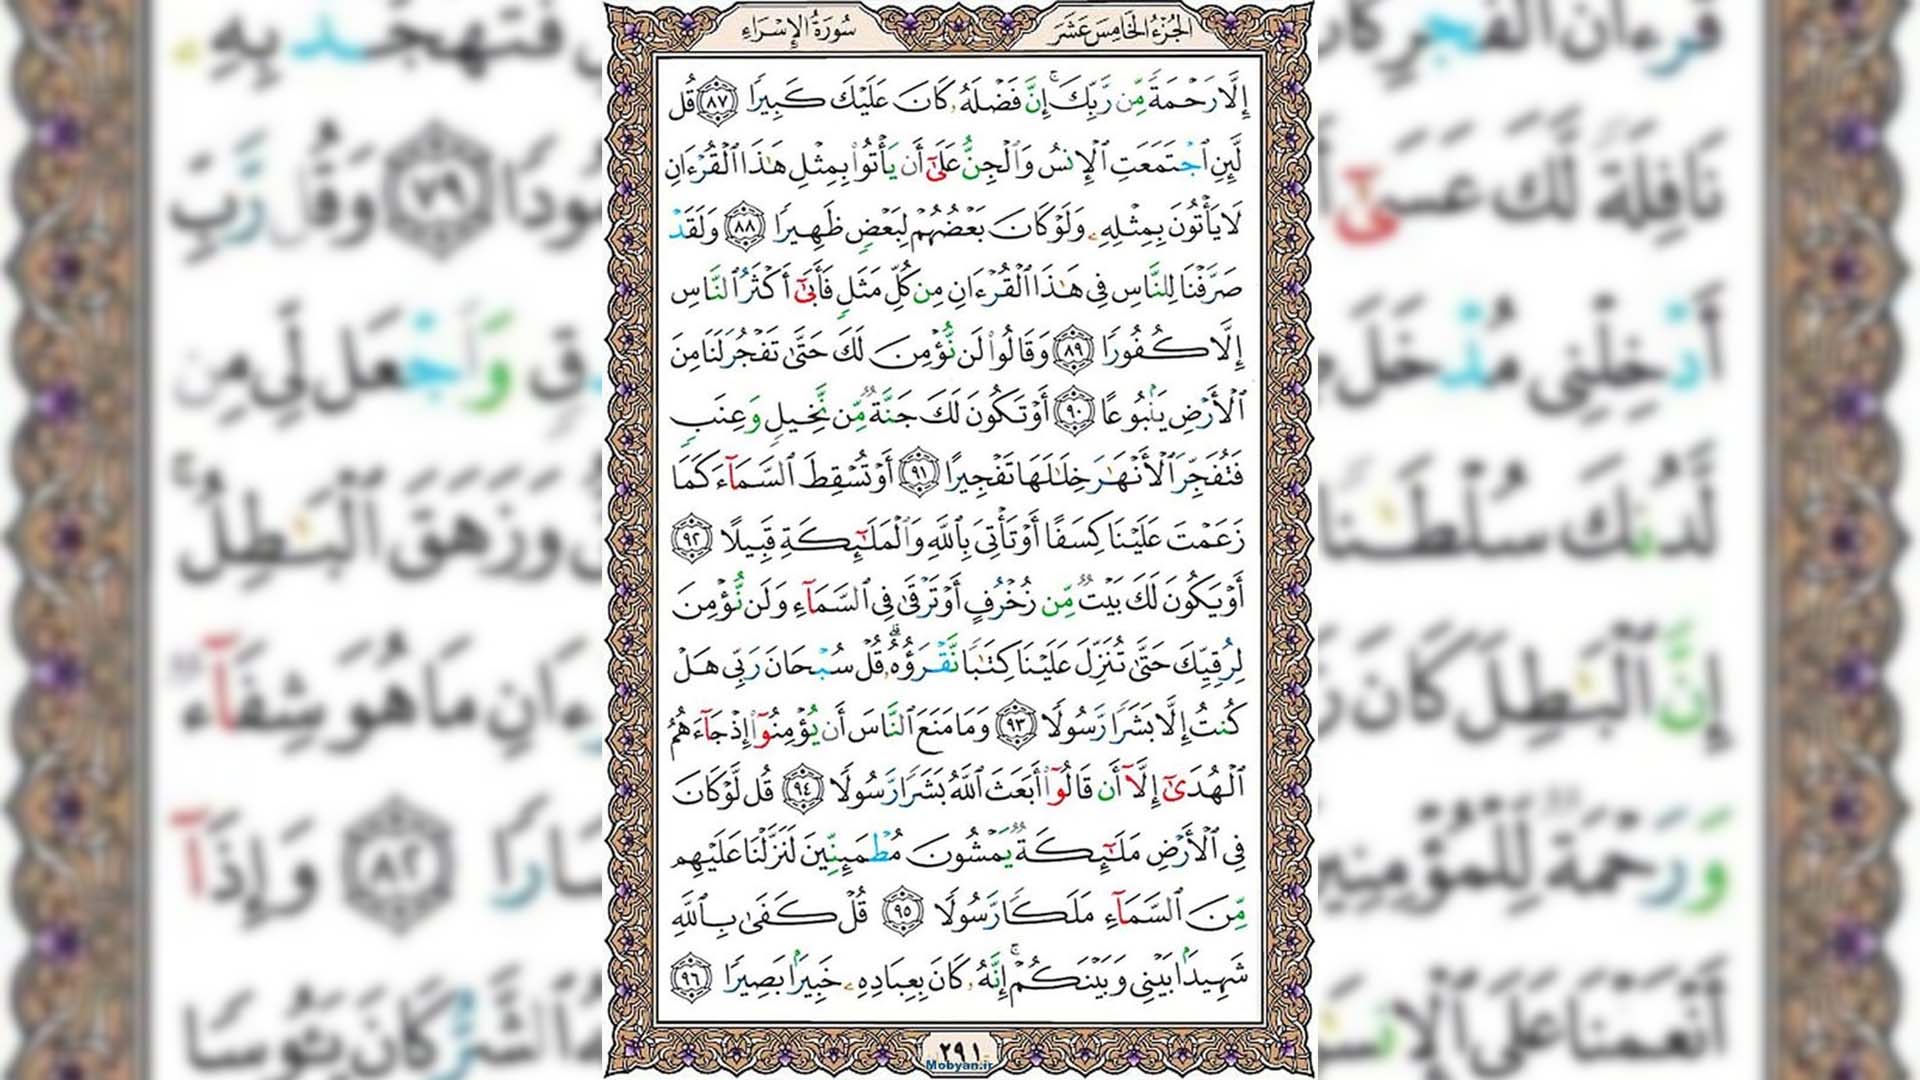 الجُزءُ الخَامِسَ عَشَرَ
سُورَةُ الإِسْرَاءِ
إِلَّا رَحْمَةً مِّن رَّبِّكَ ۚ إِنَّ فَضْلَهُۥ كَانَ عَلَيْكَ كَبِيرًا ﴿٨٧﴾ قُل
لَّئِنِ ٱجْتَمَعَتِ ٱلْإِنسُ وَٱلْجِنُّ عَلَىٰٓ أَن يَأْتُوا۟ بِمِثْلِ هَـٰذَا ٱلْقُرْءَانِ
لَا يَأْتُونَ بِمِثْلِهِۦ وَلَوْ كَانَ بَعْضُهُمْ لِبَعْضٍ ظَهِيرًا ﴿٨٨﴾ وَلَقَدْ
صَرَّفْنَا لِلنَّاسِ فِى هَـٰذَا ٱلْقُرْءَانِ مِن كُلِّ مَثَلٍ فَأَبَىٰٓ أَكْثَرُ ٱلنَّاسِ
إِلَّا كُفُورًا ﴿٨٩﴾ وَقَالُوا۟ لَن نُّؤْمِنَ لَكَ حَتَّىٰ تَفْجُرَ لَنَا مِنَ
ٱلْأَرْضِ يَنۢبُوعًا ﴿٩٠﴾ أَوْ تَكُونَ لَكَ جَنَّةٌ مِّن نَّخِيلٍ وَعِنَبٍ
فَتُفَجِّرَ ٱلْأَنْهَـٰرَ خِلَـٰلَهَا تَفْجِيرًا ﴿٩١﴾ أَوْ تُسْقِطَ ٱلسَّمَآءَ كَمَا
زَعَمْتَ عَلَيْنَا كِسَفًا أَوْ تَأْتِىَ بِٱللَّهِ وَٱلْمَلَـٰٓئِكَةِ قَبِيلًا ﴿٩٢﴾
أَوْ يَكُونَ لَكَ بَيْتٌ مِّن زُخْرُفٍ أَوْ تَرْقَىٰ فِى ٱلسَّمَآءِ وَلَن نُّؤْمِنَ
لِرُقِيِّكَ حَتَّىٰ تُنَزِّلَ عَلَيْنَا كِتَـٰبًا نَّقْرَؤُهُۥ ۗ قُلْ سُبْحَانَ رَبِّى هَلْ
كُنتُ إِلَّا بَشَرًا رَّسُولًا ﴿٩٣﴾ وَمَا مَنَعَ ٱلنَّاسَ أَن يُؤْمِنُوٓا۟ إِذْ جَآءَهُمُ
ٱلْهُدَىٰٓ إِلَّآ أَن قَالُوٓا۟ أَبَعَثَ ٱللَّهُ بَشَرًا رَّسُولًا ﴿٩٤﴾ قُل لَّوْ كَانَ
فِى ٱلْأَرْضِ مَلَـٰٓئِكَةٌ يَمْشُونَ مُطْمَئِنِّينَ لَنَزَّلْنَا عَلَيْهِم
مِّنَ ٱلسَّمَآءِ مَلَكًا رَّسُولًا ﴿٩٥﴾ قُلْ كَفَىٰ بِٱللَّهِ
شَهِيدًۢا بَيْنِى وَبَيْنَكُمْ ۚ إِنَّهُۥ كَانَ بِعِبَادِهِۦ خَبِيرًۢا بَصِيرًا ﴿٩٦﴾
٢٩١
Mobyan.ir